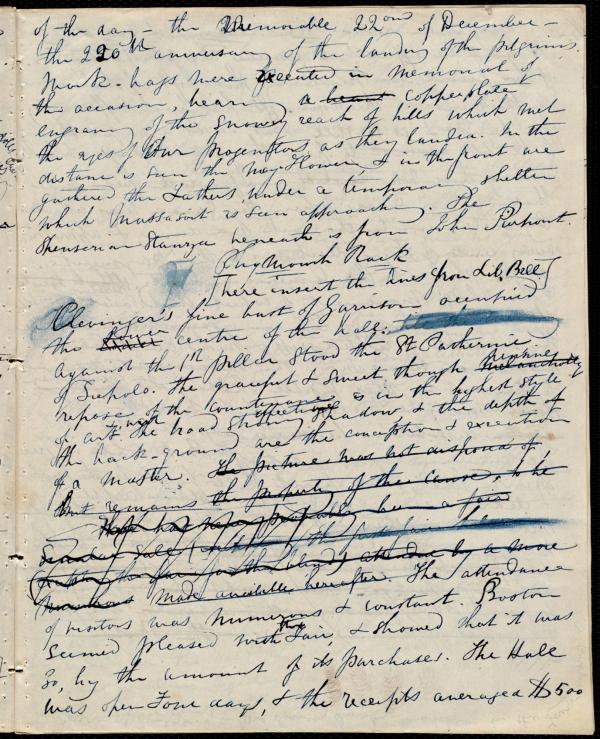 of the day - the Memorable 22nd of December -
the 220th anniversary of the landing of the pilgrims.
Work-bags were executed in memorial of
the occasion, bearing a copperplate
engraving of the snowy reach of hills which met
the eyes of our progenitors as they landed. In the
distance is seen the Mayflower, & in the front are
gathered the Fathers under a temporary shelter
which Massasoit is seen approaching. The
Spenserian Stanza beneath is from John Pierpont.
Plymouth Rock
[There insert the lines from Lib. Bell]
Clevinger's fine bust of Garrison occupied
the lower centre of the hall;
Against the 1st pillar stood the St Catherine
of Tiepolo. The graceful & sweet though pensive melancholy
repose of the countenance is in the highest style
of art, and the broad shadow & the depth of
the back-ground are the conception & execution
of a master. The picture was not disposed of
but remains the property of the cause, to be
made available hereafter. The attendance
of visitors was numerous & constant. Boston
seemed pleased with the Fair, & showed that it was
so, by the amount of its purchases. The Hall
was open Four days, & the receipts averaged $500